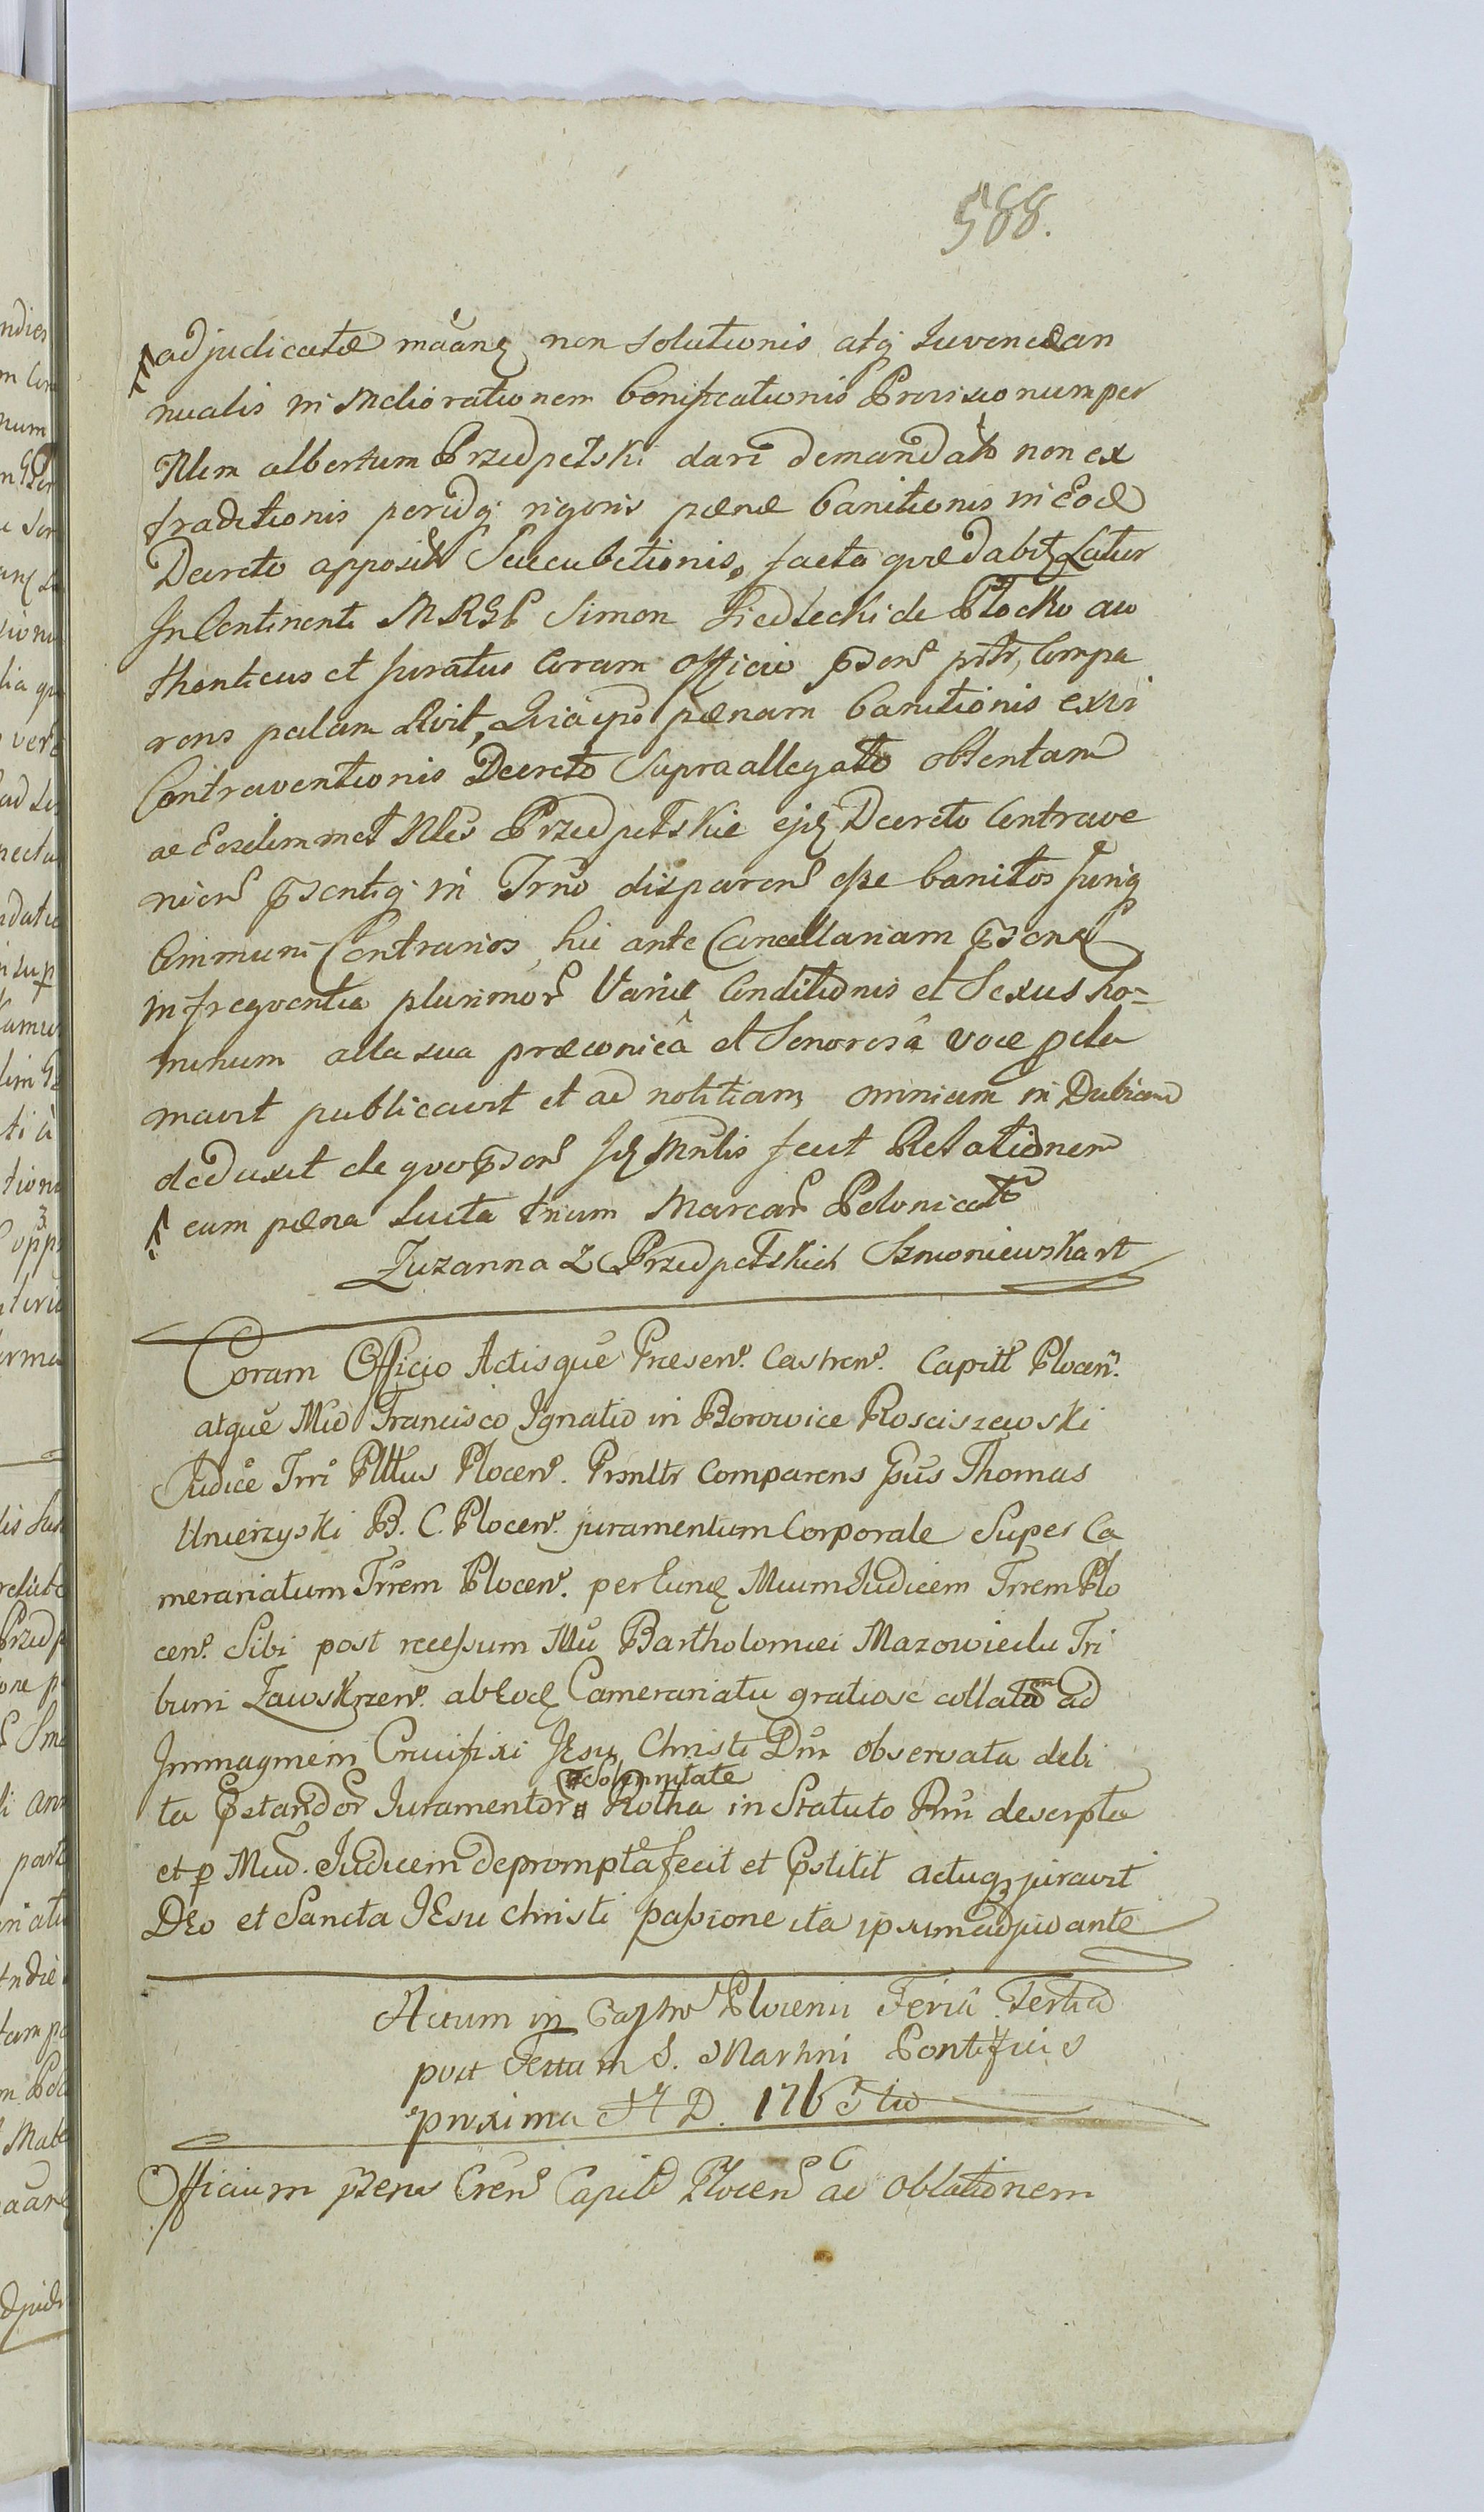 588.
adjudicatæ non solutionis atq Juvencæ an
nualis in Meliorationem bonificationis Provisionum per
Nlem albertum Przedpełski dari demandatæ non ex
traditionis perindq rigoris pænæ banitionis in Eod
Decreto apposit Succubitionis, facta
In Continenti MRGP Simon Siedlecki de Płocko au
thenticus et Juratus Coram Officio Compa
rens palam pænam banitionis
Contraventionis Decreto Supra allegato obtentam
ac Eosdemmet Nles Przedpełskie ejq Decreto Contrave
nien in Trno disparen eße banitos Juriq
Communi Contrarios, hic ante Cancellariam
in freqventia plurimor Variæ Conditionis et Sexus ho=
minum alta sua præconicâ et Sonorosâ voce pcla
mavit publicavit et ad notitiam omnium in Dubiam
deduxit de quo fecit Relationem
cum pæna Lucta trium Marcar Polonicat
Zuzanna Z Przedpełskich Szmoniewska rt
Coram Officio Actisque Præsen. Castren. Capitl Plocen.
atque Mfco Francisco Ignatio in Borowice Rosciszewski
Judice Trri Pltus Plocen. Prsnltr Comparens Gsus Thomas
Umierzyski B. C. Plocen. juramentum Corporale Super Ca
merariatum Trrem Plocen. per Eunq Mum Judicem Trrem Plo
cen. Sibi post receßum Mfci Bartholomæi Mazowiecki Tri
buni Zawskrzen. ab Eodq Camerariatu gratiose collatum ad
Immaginem Crucifixi JEsu Christi Dni observata debi
#solemnitate
ta Pstandor Juramentor # Rotha in Statuto Rni descripta
et p Mud. Judicem deprompta fecit et Pstitit actuq juravit
DEo et Sancta JEsu christi paßione ita ipsum adjuvante
Actum in Castro Plocensi Feria Tertia
post Festum S. Martini Pontificis
proxima A D. 176
Officium pzens Cren Capitl Plocen ad Oblationem